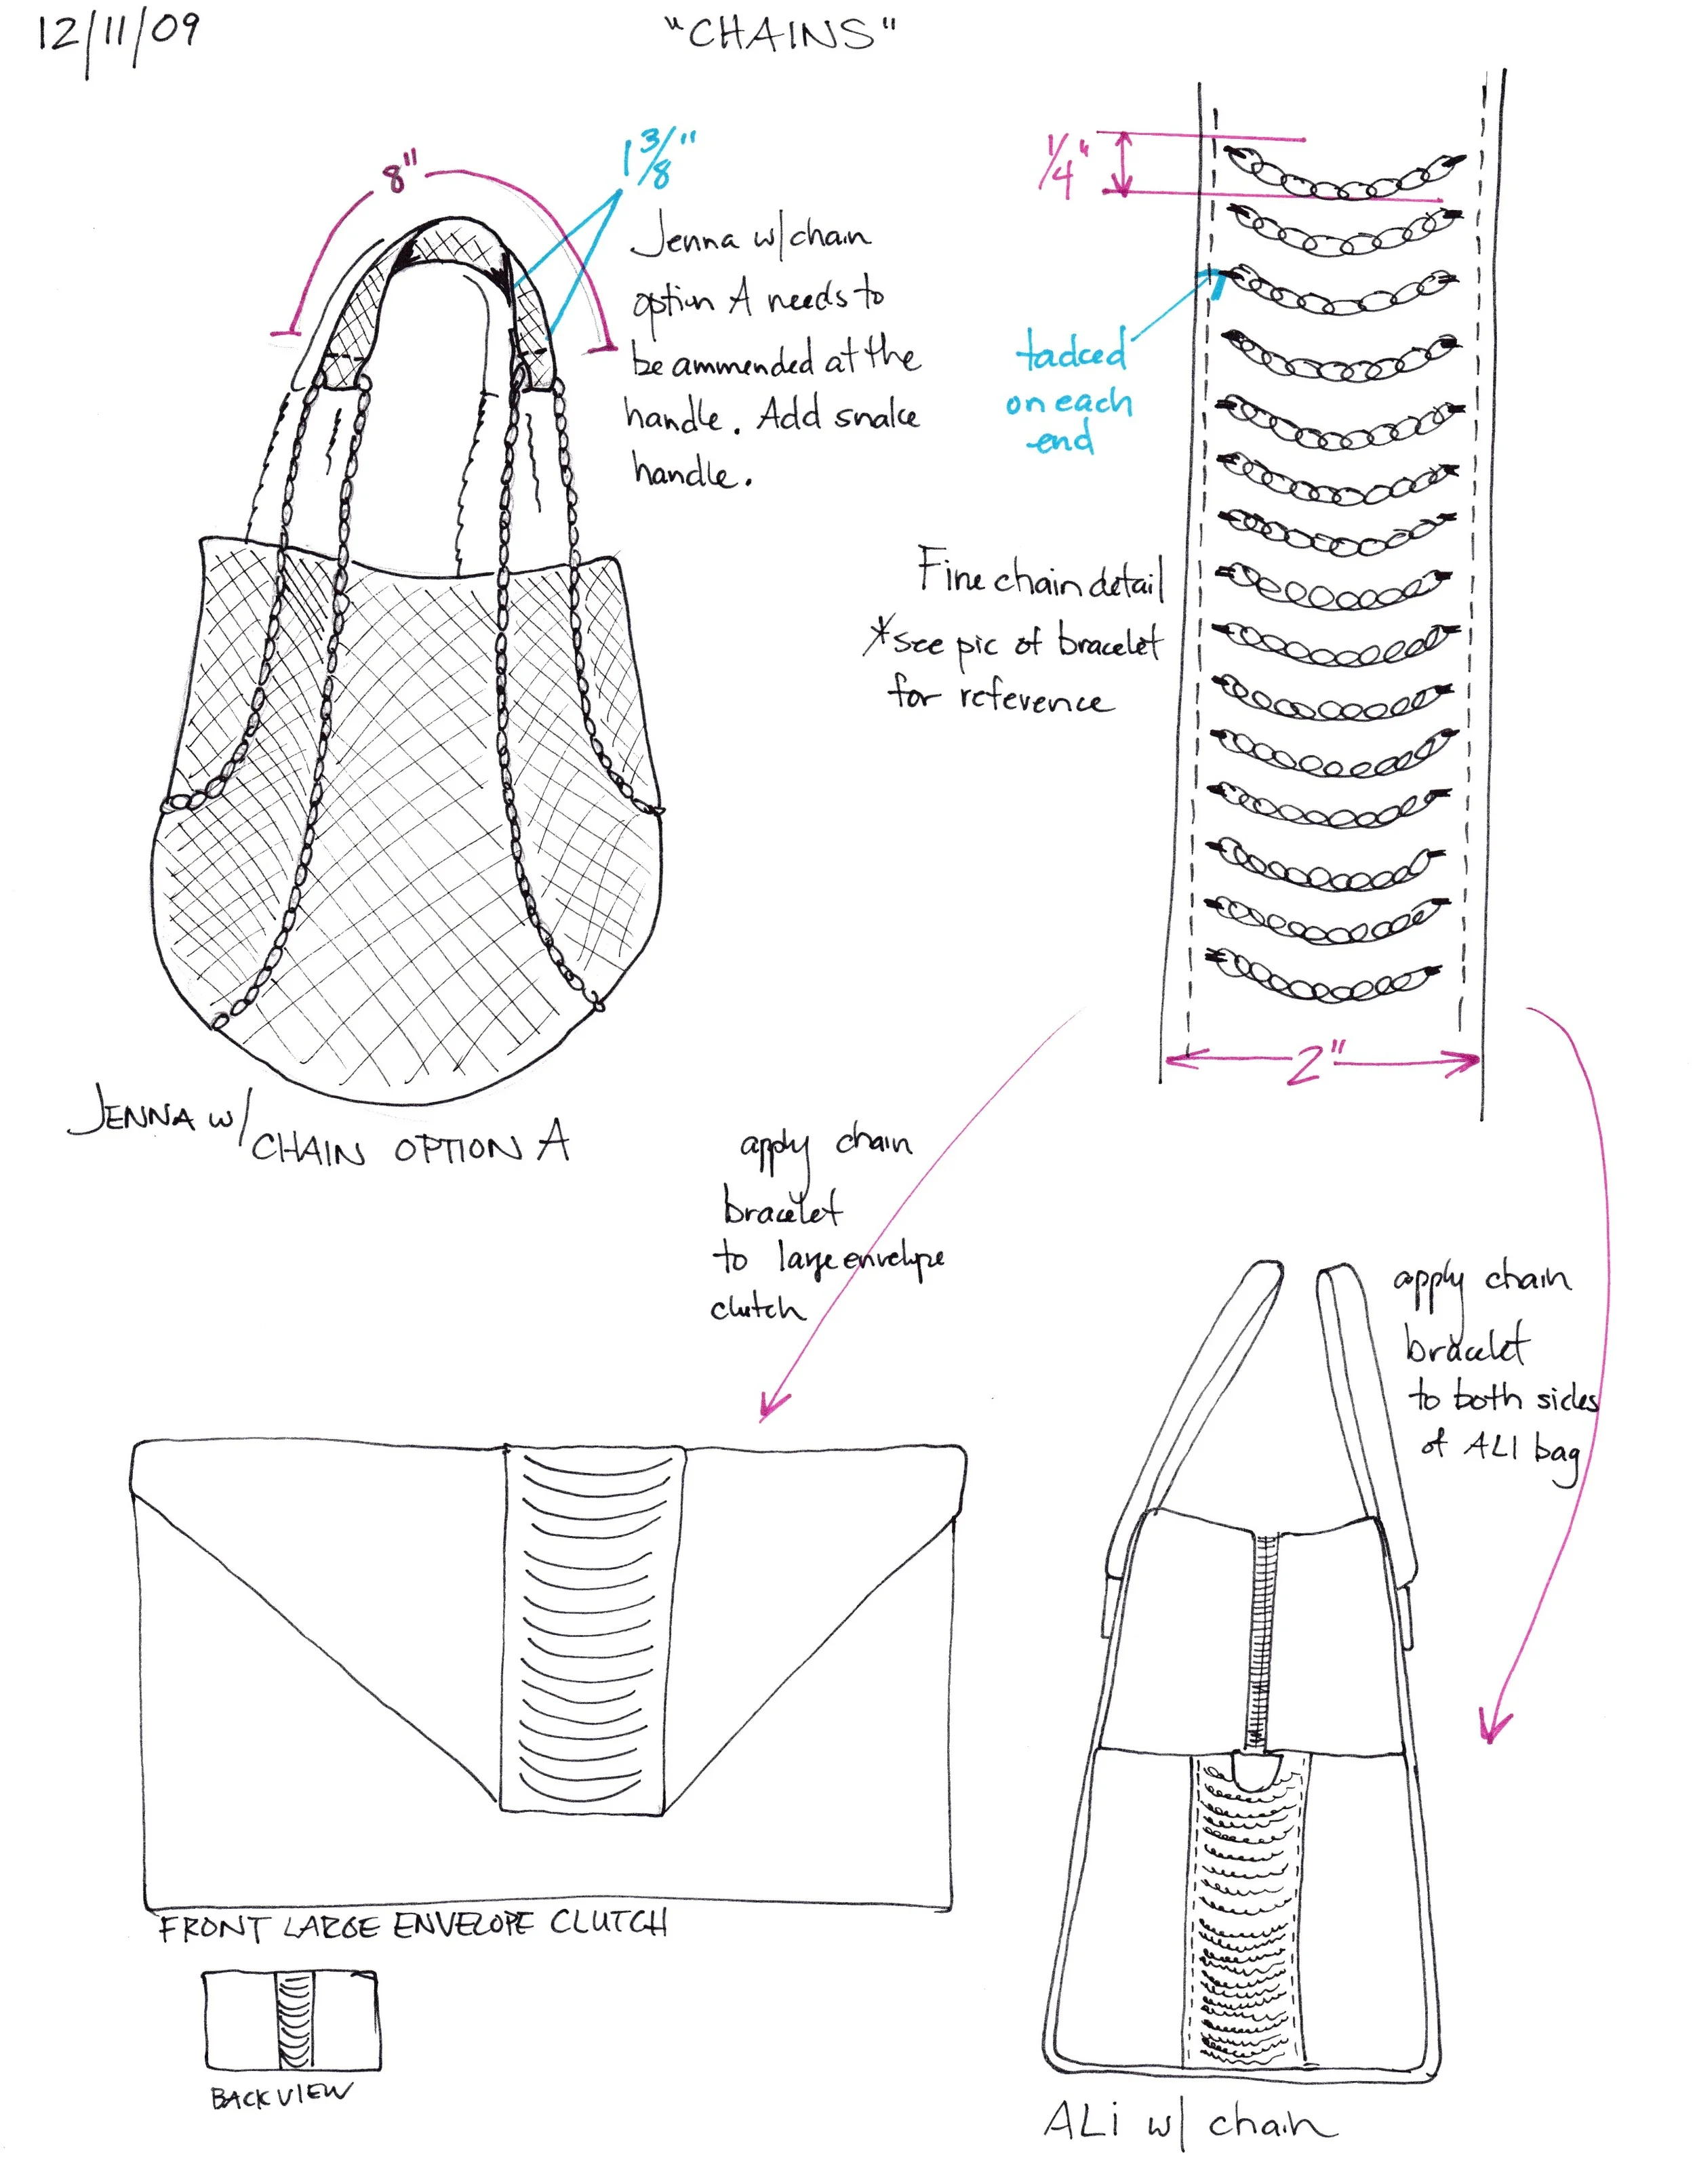 12/11/09
"CHAINS"
8"
1 3/8"
Jenna w/chain
option A needs to
be ammended at the
handle. Add snake
handle.
1/4"
tadced
on each
end
Fine chain detail
*see pic of bracelet
for reference
2"
JENNA w/
CHAIN OPTION A
apply chain
bracelet
to large envelope
clutch
apply chain
bracelet
to both sides
of ALI bag
FRONT LARGE ENVELOPE CLUTCH
BACK VIEW
ALi w/ chain